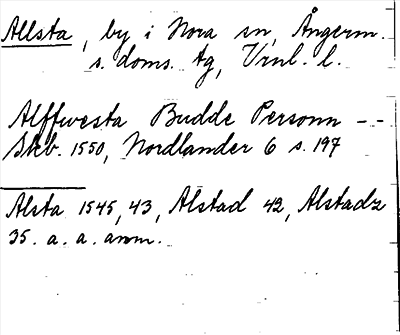 Allsta, by i Nora sn, Ångerm.
s. doms. tg, Vrnl. l.
Alffwesta Budde Personn - -
Skb. 1550, Nordlander 6 s. 197
Alsta 1545, 43, Alstad 42, Alstadz
35. a. a. anm.